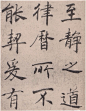 至静之道
律曆所不
能契爰有